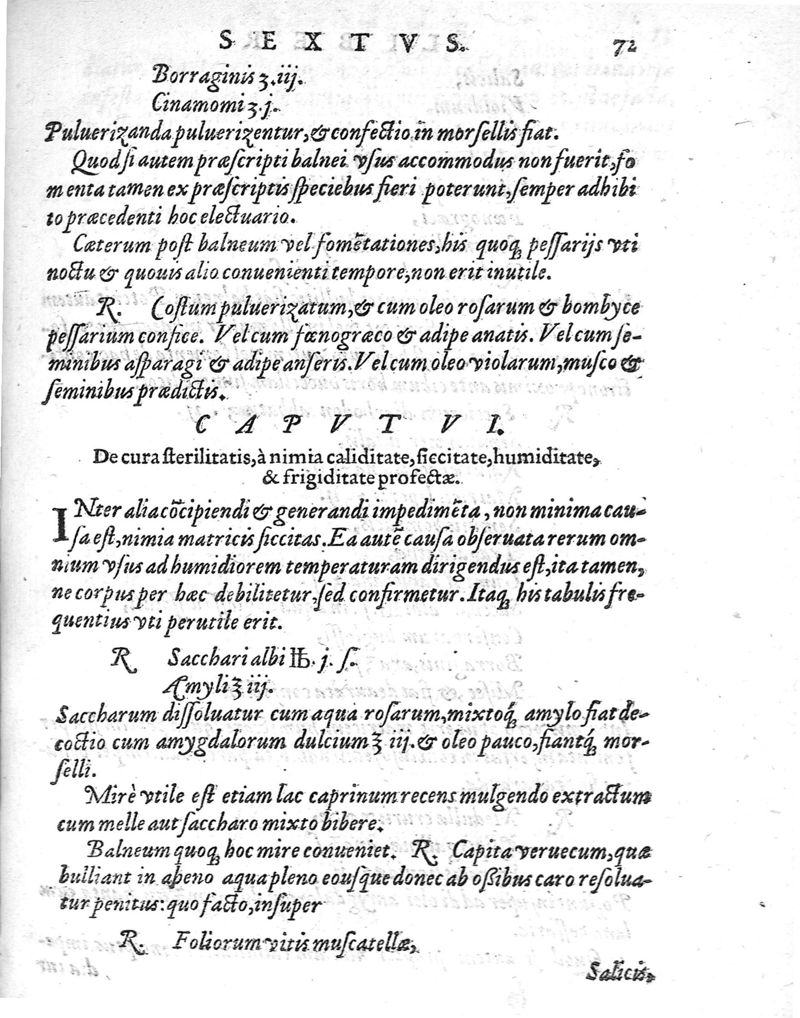 SEXTVS. 72
Borraginis ʒ.iij.
Cinamomi ʒ.j.
Puluerizanda puluerizentur, & confectio in morsellis fiat.
Quod si autem præscripti balnei vsus accommodus non fuerit, fo
menta tamen ex præscriptis speciebus fieri poterunt, semper adhibi
to præcedenti hoc electuario.
Cæterum post balneum vel fomẽtationes, his quoq; pessarijs vti
noctu & quouis alio conuenienti tempore, non erit inutile.
R. Costum puluerizatum, & cum oleo rosarum & bombyce
pessarium confice. Vel cum fœnogræco & adipe anatis. Vel cum se-
minibus asparagi & adipe anseris. Vel cum oleo violarum, musco &
seminibus prædictis.
CAPVT VI.
De cura sterilitatis, à nimia caliditate, siccitate, humiditate,
& frigiditate profectæ.
INter alia cõcipiendi & generandi impedimẽta, non minima cau-
sa est, nimia matricis siccitas. Ea autẽ causa obseruata rerum om-
nium vsus ad humidiorem temperaturam dirigendus est, ita tamen,
ne corpus per hæc debilitetur, sed confirmetur. Itaq; his tabulis fre-
quentius vti perutile erit.
R Sacchari albi ℔. j. s.
Amyli ʒ iij.
Saccharum dissoluatur cum aqua rosarum, mixtoq́; amylo fiat de-
coctio cum amygdalorum dulcium ʒ iij. & oleo pauco, fiantq́; mor-
selli.
Mirè vtile est etiam lac caprinum recens mulgendo extractum
cum melle aut saccharo mixto bibere.
Balneum quoq; hoc mire conueniet. R. Capita veruecum, quæ
bulliant in aheno aqua pleno eousque donec ab ossibus caro resolua-
tur penitus: quo facto, insuper
R. Foliorum vitis muscatellæ,
Salicis,